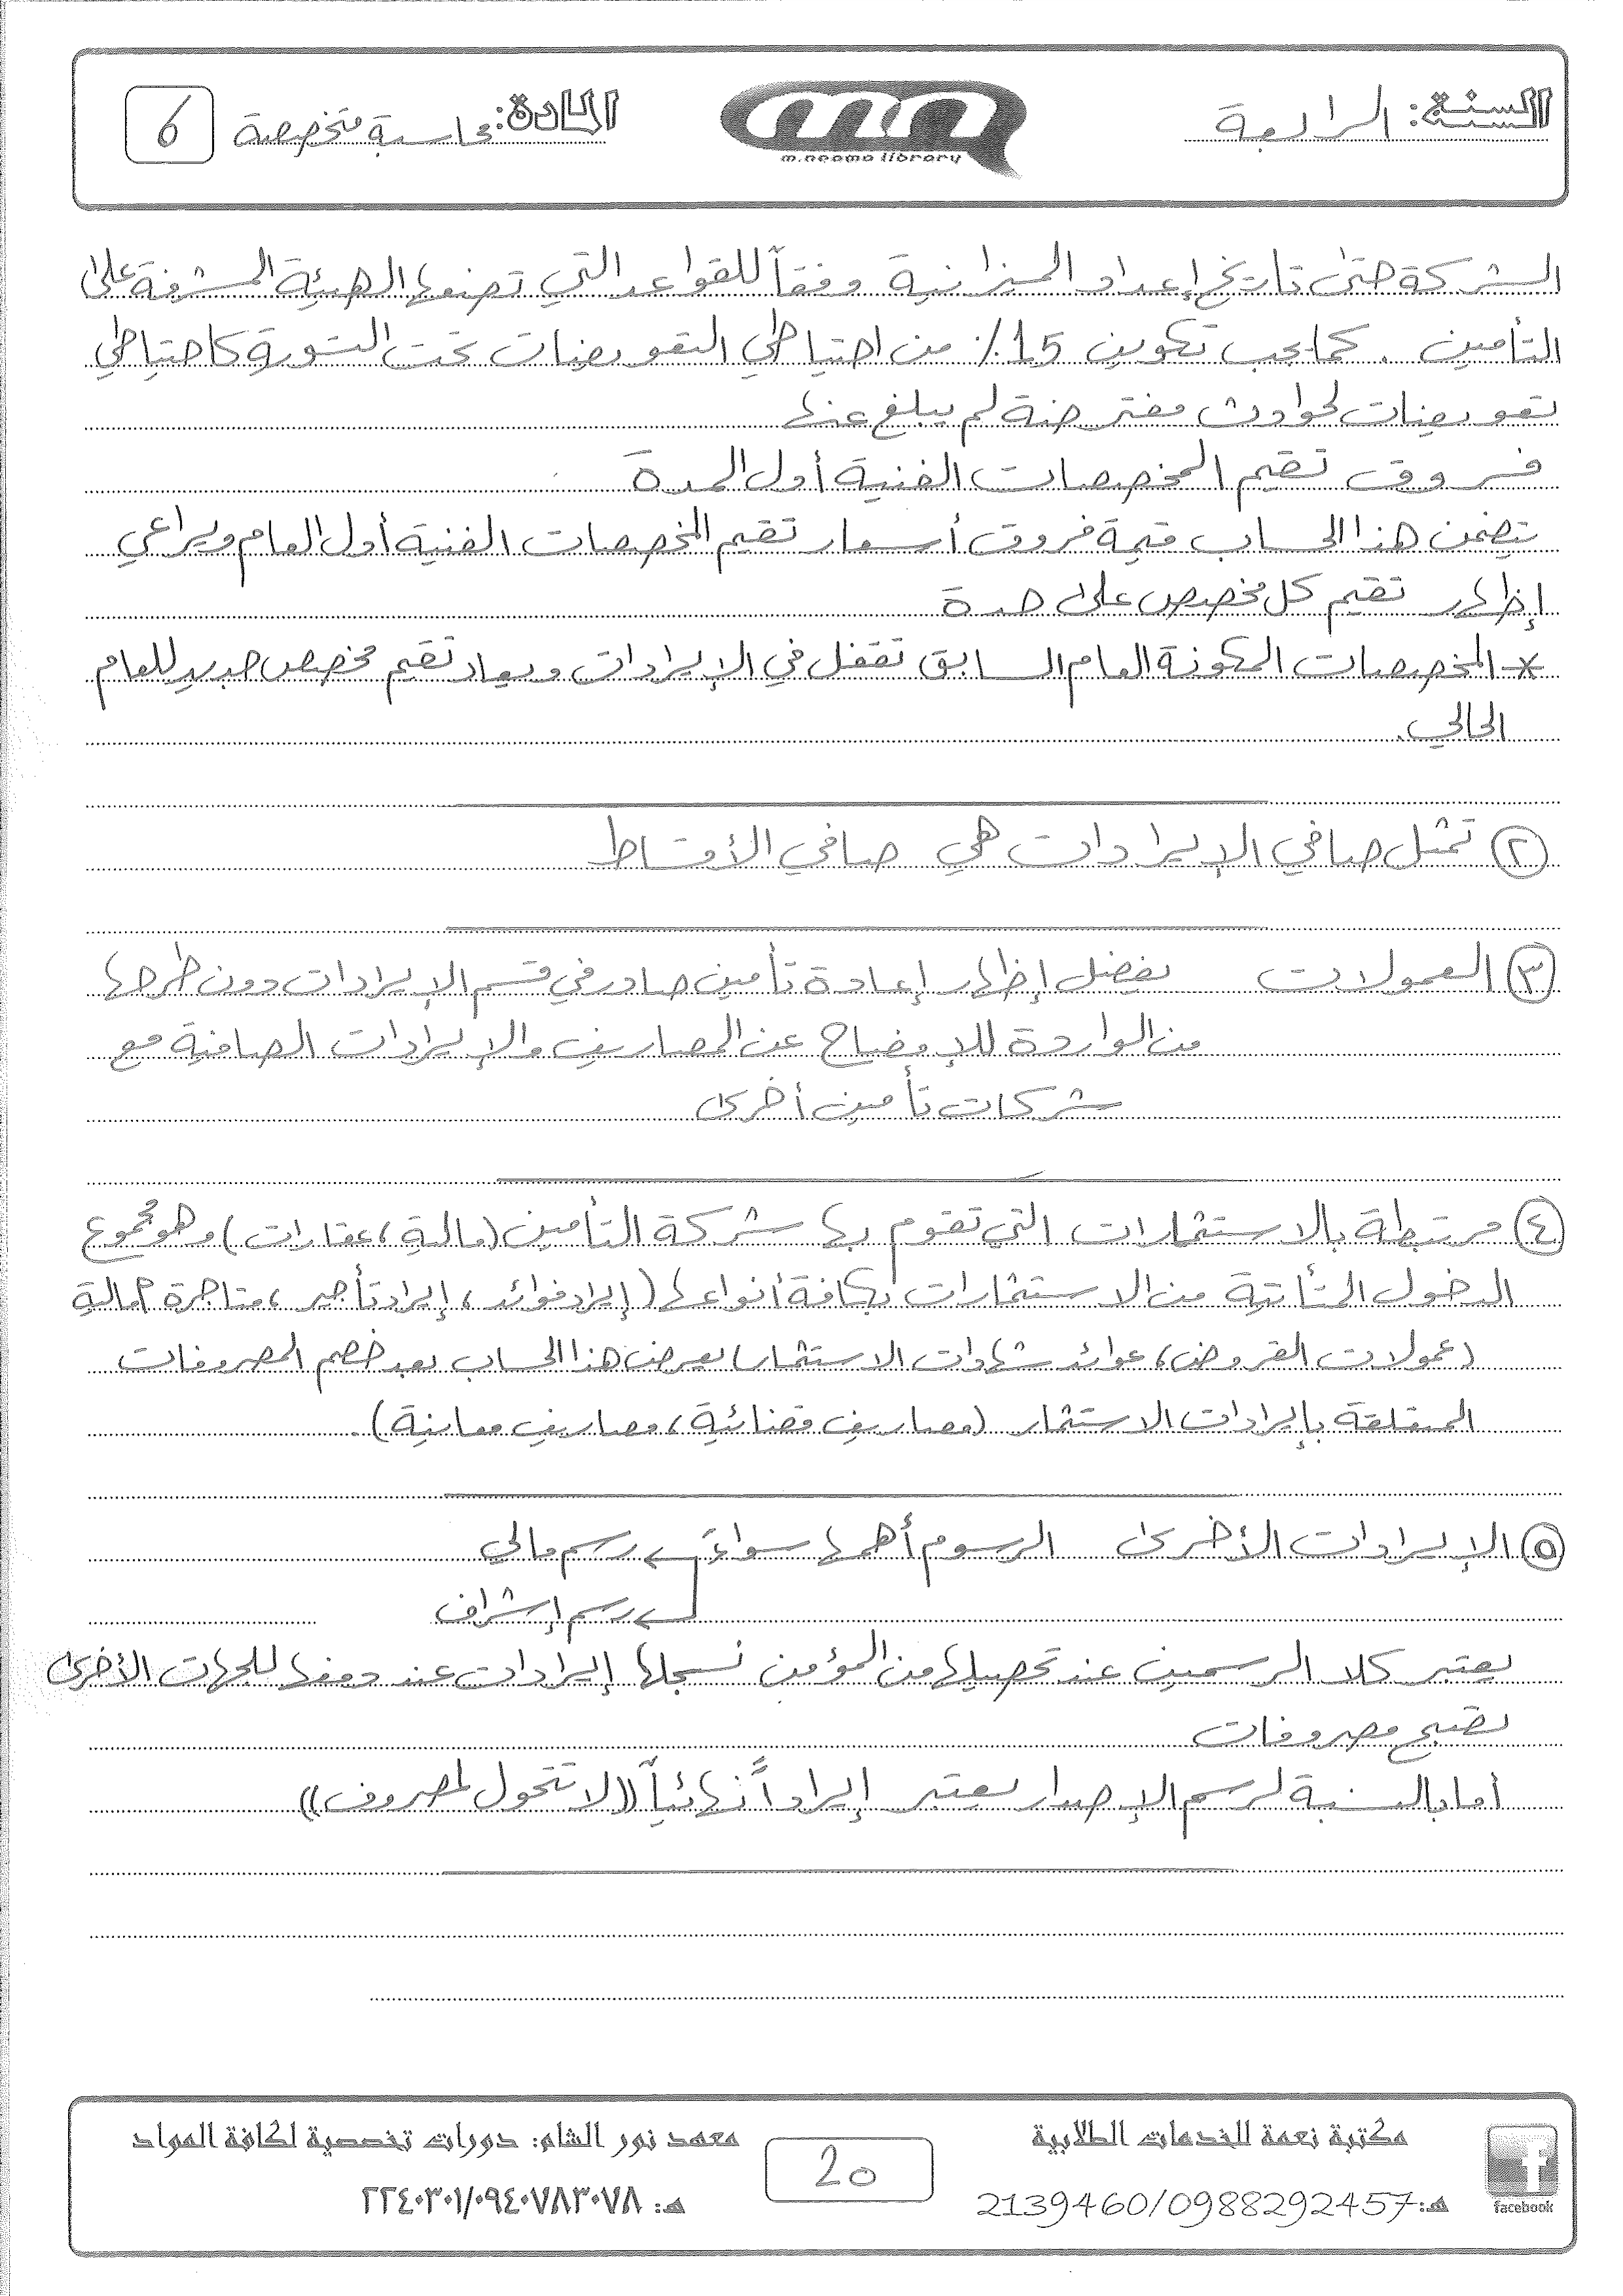 السنة: الرابعة
m.neama library
المادة: محاسبة متخصصة
6
الشركة حتى تاريخ إعداد الميزانية وفقاً للقواعد التي تضعها الهيئة المشرفة على
التأمين. كما يجب تكوين 15٪ من احتياطي التعويضات تحت التسوية كاحتياطي
تعويضات لحوادث مفترضة لم يبلغ عنها
فروق تقيم المخصصات الفنية أول المدة
يتضمن هذا الحساب قيمة فروق أسعار تقيم المخصصات الفنية أول العام ويراعي
إظهار تقيم كل مخصص على حدة
* المخصصات المكونة العام السابق تقفل في الإيرادات ويعاد تقيم مخصص جديد للعام
الحالي.
٢ تمثل صافي الإيرادات هي صافي الأقساط
٣ العمولات يفضل إظهار إعادة تأمين صادر في قسم الإيرادات دون طرحها
من الواردة للإفضاح عن المصاريف والإيرادات الصافية مع
شركات تأمين أخرى
٤ مرتبطة بالاستثمارات التي تقوم بها شركة التأمين (مالية، عقارات) وهو مجموع
الدخول المتأتية من الاستثمارات بكافة أنواعها (إيراد فوائد، إيراد تأجير، متاجرة مالية
(عمولات القروض، عوائد شهادات الاستثمار) يعرض هذا الحساب بعد خصم المصروفات
المتعلقة بإيرادات الاستثمار (مصاريف قضائية، مصاريف معاينة).
٥ الإيرادات الأخرى الرسوم أهمها سواءً رسم مالي
رسم إشراف
يعتبر كلا الرسمين عند تحصيلها من المؤمن نسجلها إيرادات عند دفعها للجهات الأخرى
تصبح مصروفات
أما بالنسبة لرسم الإصدار يعتبر إيراداً نهائياً ((لا تتحول لمصروف))
مكتبة نعمة للخدمات الطلابية
هـ: 2139460/0988292457
facebook
20
معهد نور الشام: دورات تخصصية لكافة المواد
هـ: ٢٢٤٠٣٠١/٠٩٤٠٧٨٣٠٧٨